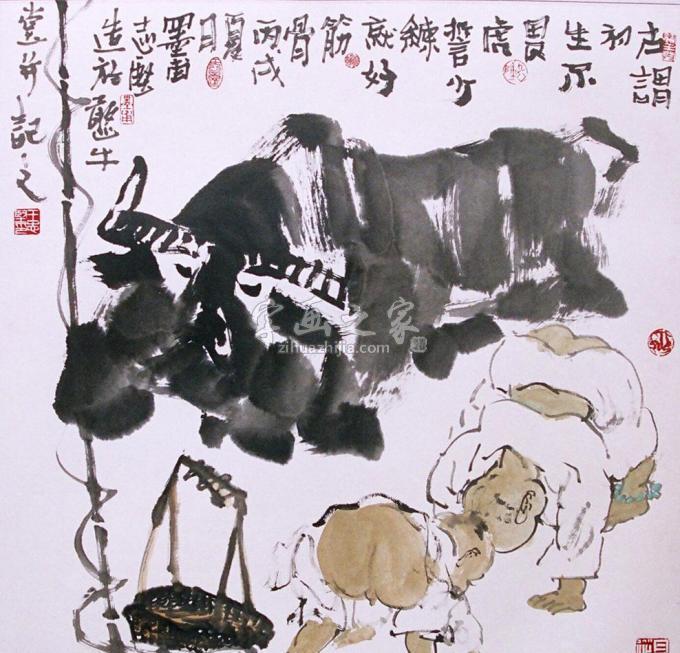 古謂
初
生不
畏
虎
誓少
練
就好
筋
骨
丙戌
夏
造於憨牛
堂並記之
字画之家
zihuazhijia.com